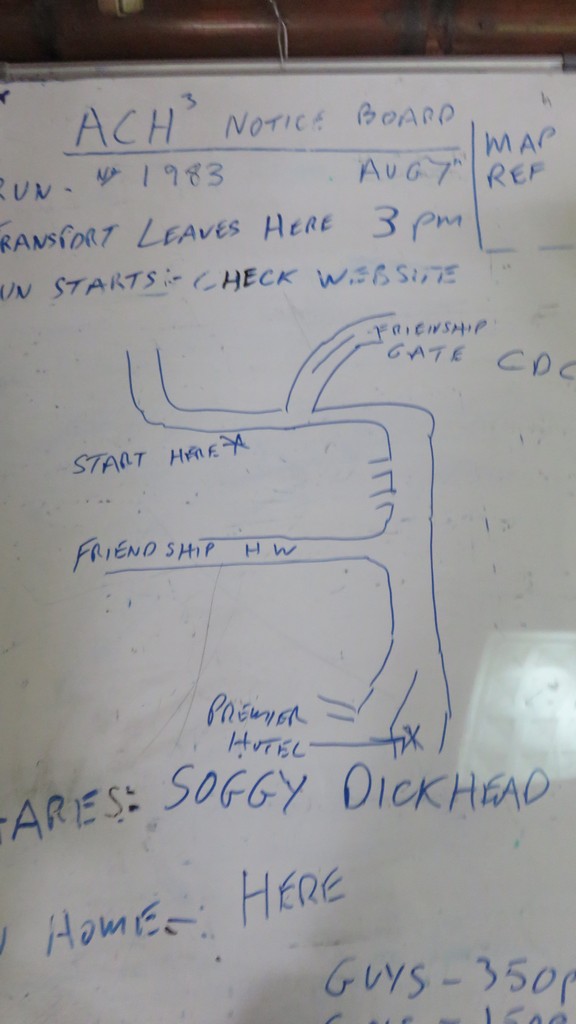 ACH³ NOTICE BOARD
RUN - # 1983 AUG 7TH
MAP
REF
TRANSPORT LEAVES HERE 3 pm
UN STARTS:- CHECK WEBSITE
FRIENSHIP
GATE
CDC
START HERE X
FRIENDSHIP HW
PREMIER
HOTEL X
HARES: SOGGY DICKHEAD
HOME-: HERE
GUYS - 350P